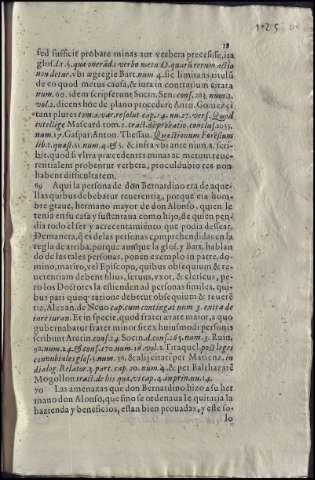 sed sufficit probare minas aut verbera precesisse, ita
glos. l. 5. que onerãdi verbo metu D. quarũ rerum actio
non detur. vbi agregie Bart. num. 4. sic limitans titulũ
de eo quod metus causa, & iura in contrarium citata
num. 60. idem scripserunt Socin. Sen. cons. 103. num. 2.
vol. 2. dicens hoc de plano procedere, Anto. Gomez ci
tans plures tom. 2. var. resolut. cap. 14. nu. 27. vers. Quod
intellige Mascard. tom. 2. tract. de probatio. conclus. 1053.
num. 17. Gaspar. Anton. Thesau. Questionum Forẽsium
lib. 2. quæst. 51. num. 4. & 5. & infra vbi ance num. 8. scri
bit, quod si vltra præcedentis minas ac metum reue-
rentialem probentur verbera, procul dubio res non
habent difficultatem.
69 Aqui la persona de don Bernardino era de aque-
llas quibus debebatur reuerentia, porque era hom-
bre graue, hermano mayor de don Alonso, quien le
tenia en su casa y sustentaua como hijo, de quien pen-
dia todo el ser y acrecentamiẽto que podia dessear.
Demanera, q̃ es de las personas comprehendidas en la
regla de arriba, porque aunque la glos. y Bart. hablan
do de las tales personas, ponen exemplo in patre, do-
mino, marito, vel Episcopo, quibus obsequium & re-
uerentiam debent filius, seruus, vxor, & clericus, pe-
ro los Doctores la estienden ad personas similes, qui-
bus pari quoq; ratione debetur obsequium & reuerẽ-
tia, Alexan. de Neuo cap. cum contingat num 3. extra de
iure iuran. Et in specie, quod frater ætate maior, a quo
gubernabatur frater minor sit ex huiusmodi personis
scribunt Aretin. cons. 24. Socin. d. cons. 163. num. 3. Ruin.
92. num. 24. & cons. 170. num. 18. vol. 2. Tiraquel. post leges
connubiales glos. 5. num. 38. & alij citati per Matienz. in
dialog. Relator. 3. part. cap. 20. num. 4. & per Balthazarẽ
Mogollon tract. de his quæ vi cap. 4. in prin. nu. 14.
70 Las amenazas que don Bernardino hizo a su her
mano don Alonso, que sino se ordenaua le quitaria la
hazienda y beneficios, estan bien prouadas, y este so-
lo